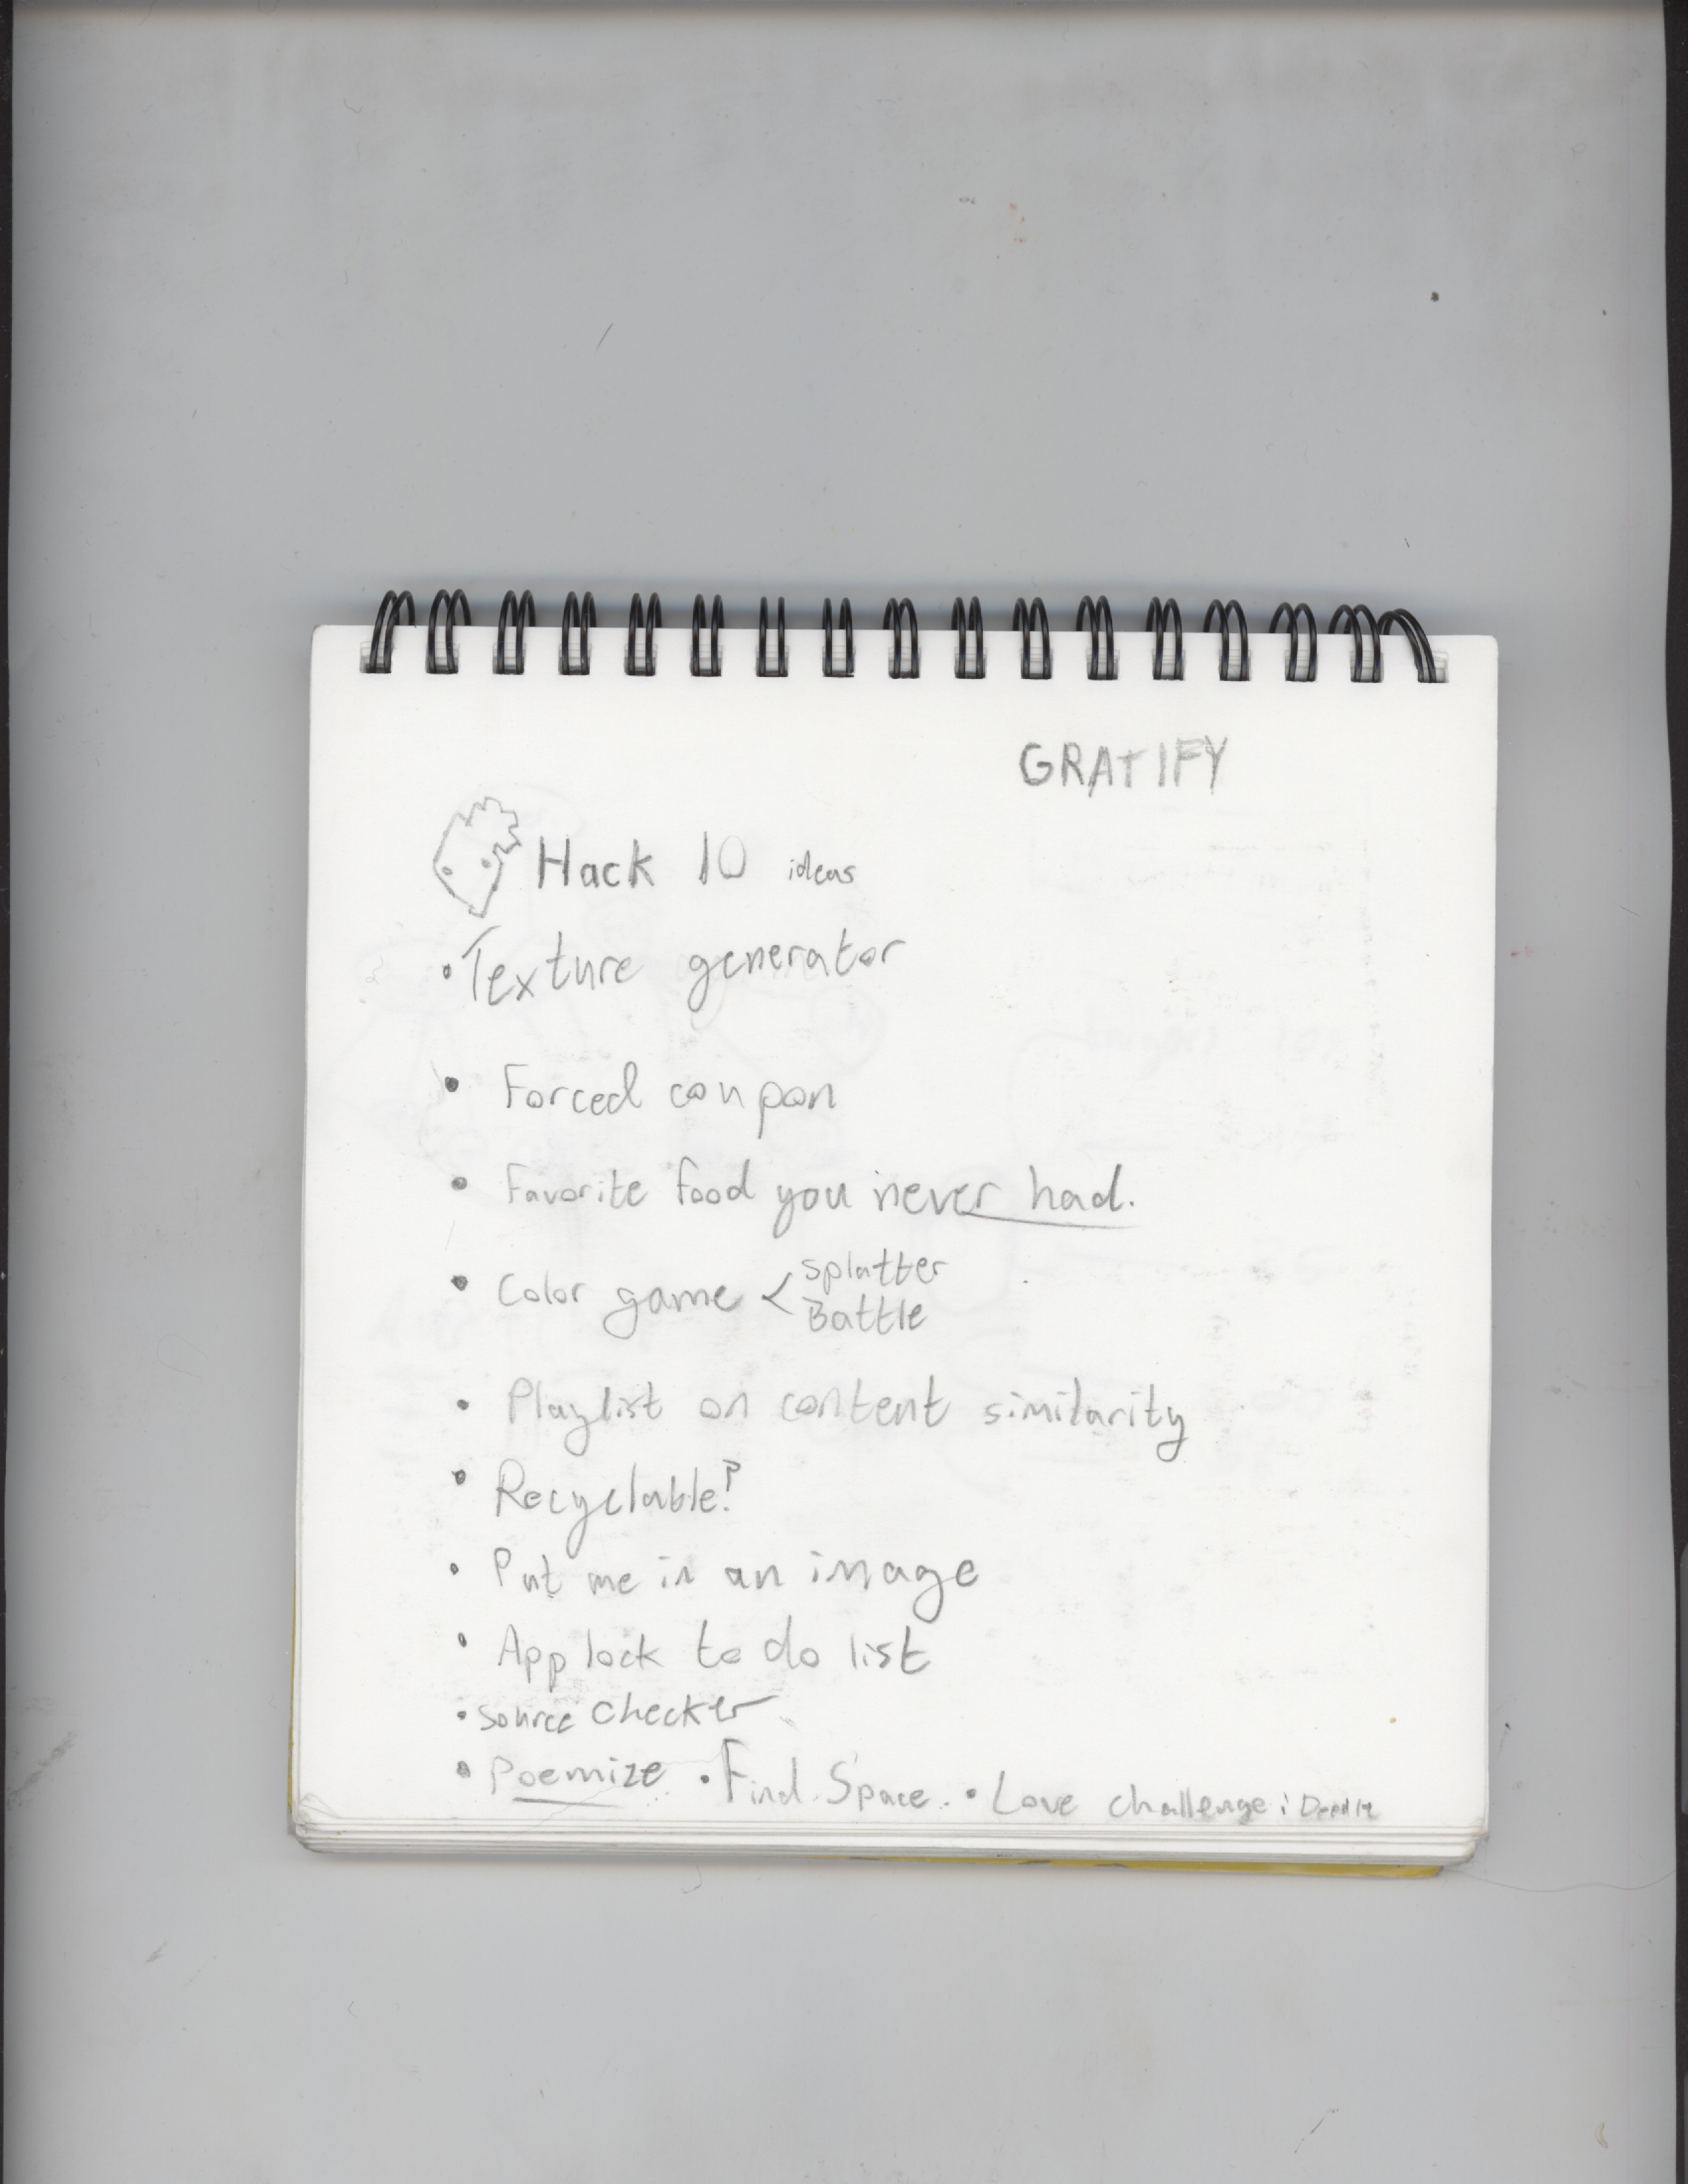 GRATIFY
Hack 10 ideas
• Texture generator
• Forced coupon
• Favorite food you never had.
• Color game < splatter
Battle
• Playlist on content similarity
• Recyclable?
• Put me in an image
• App lock to do list
• source checker
• Poemize • Find Space. • Love challenge: